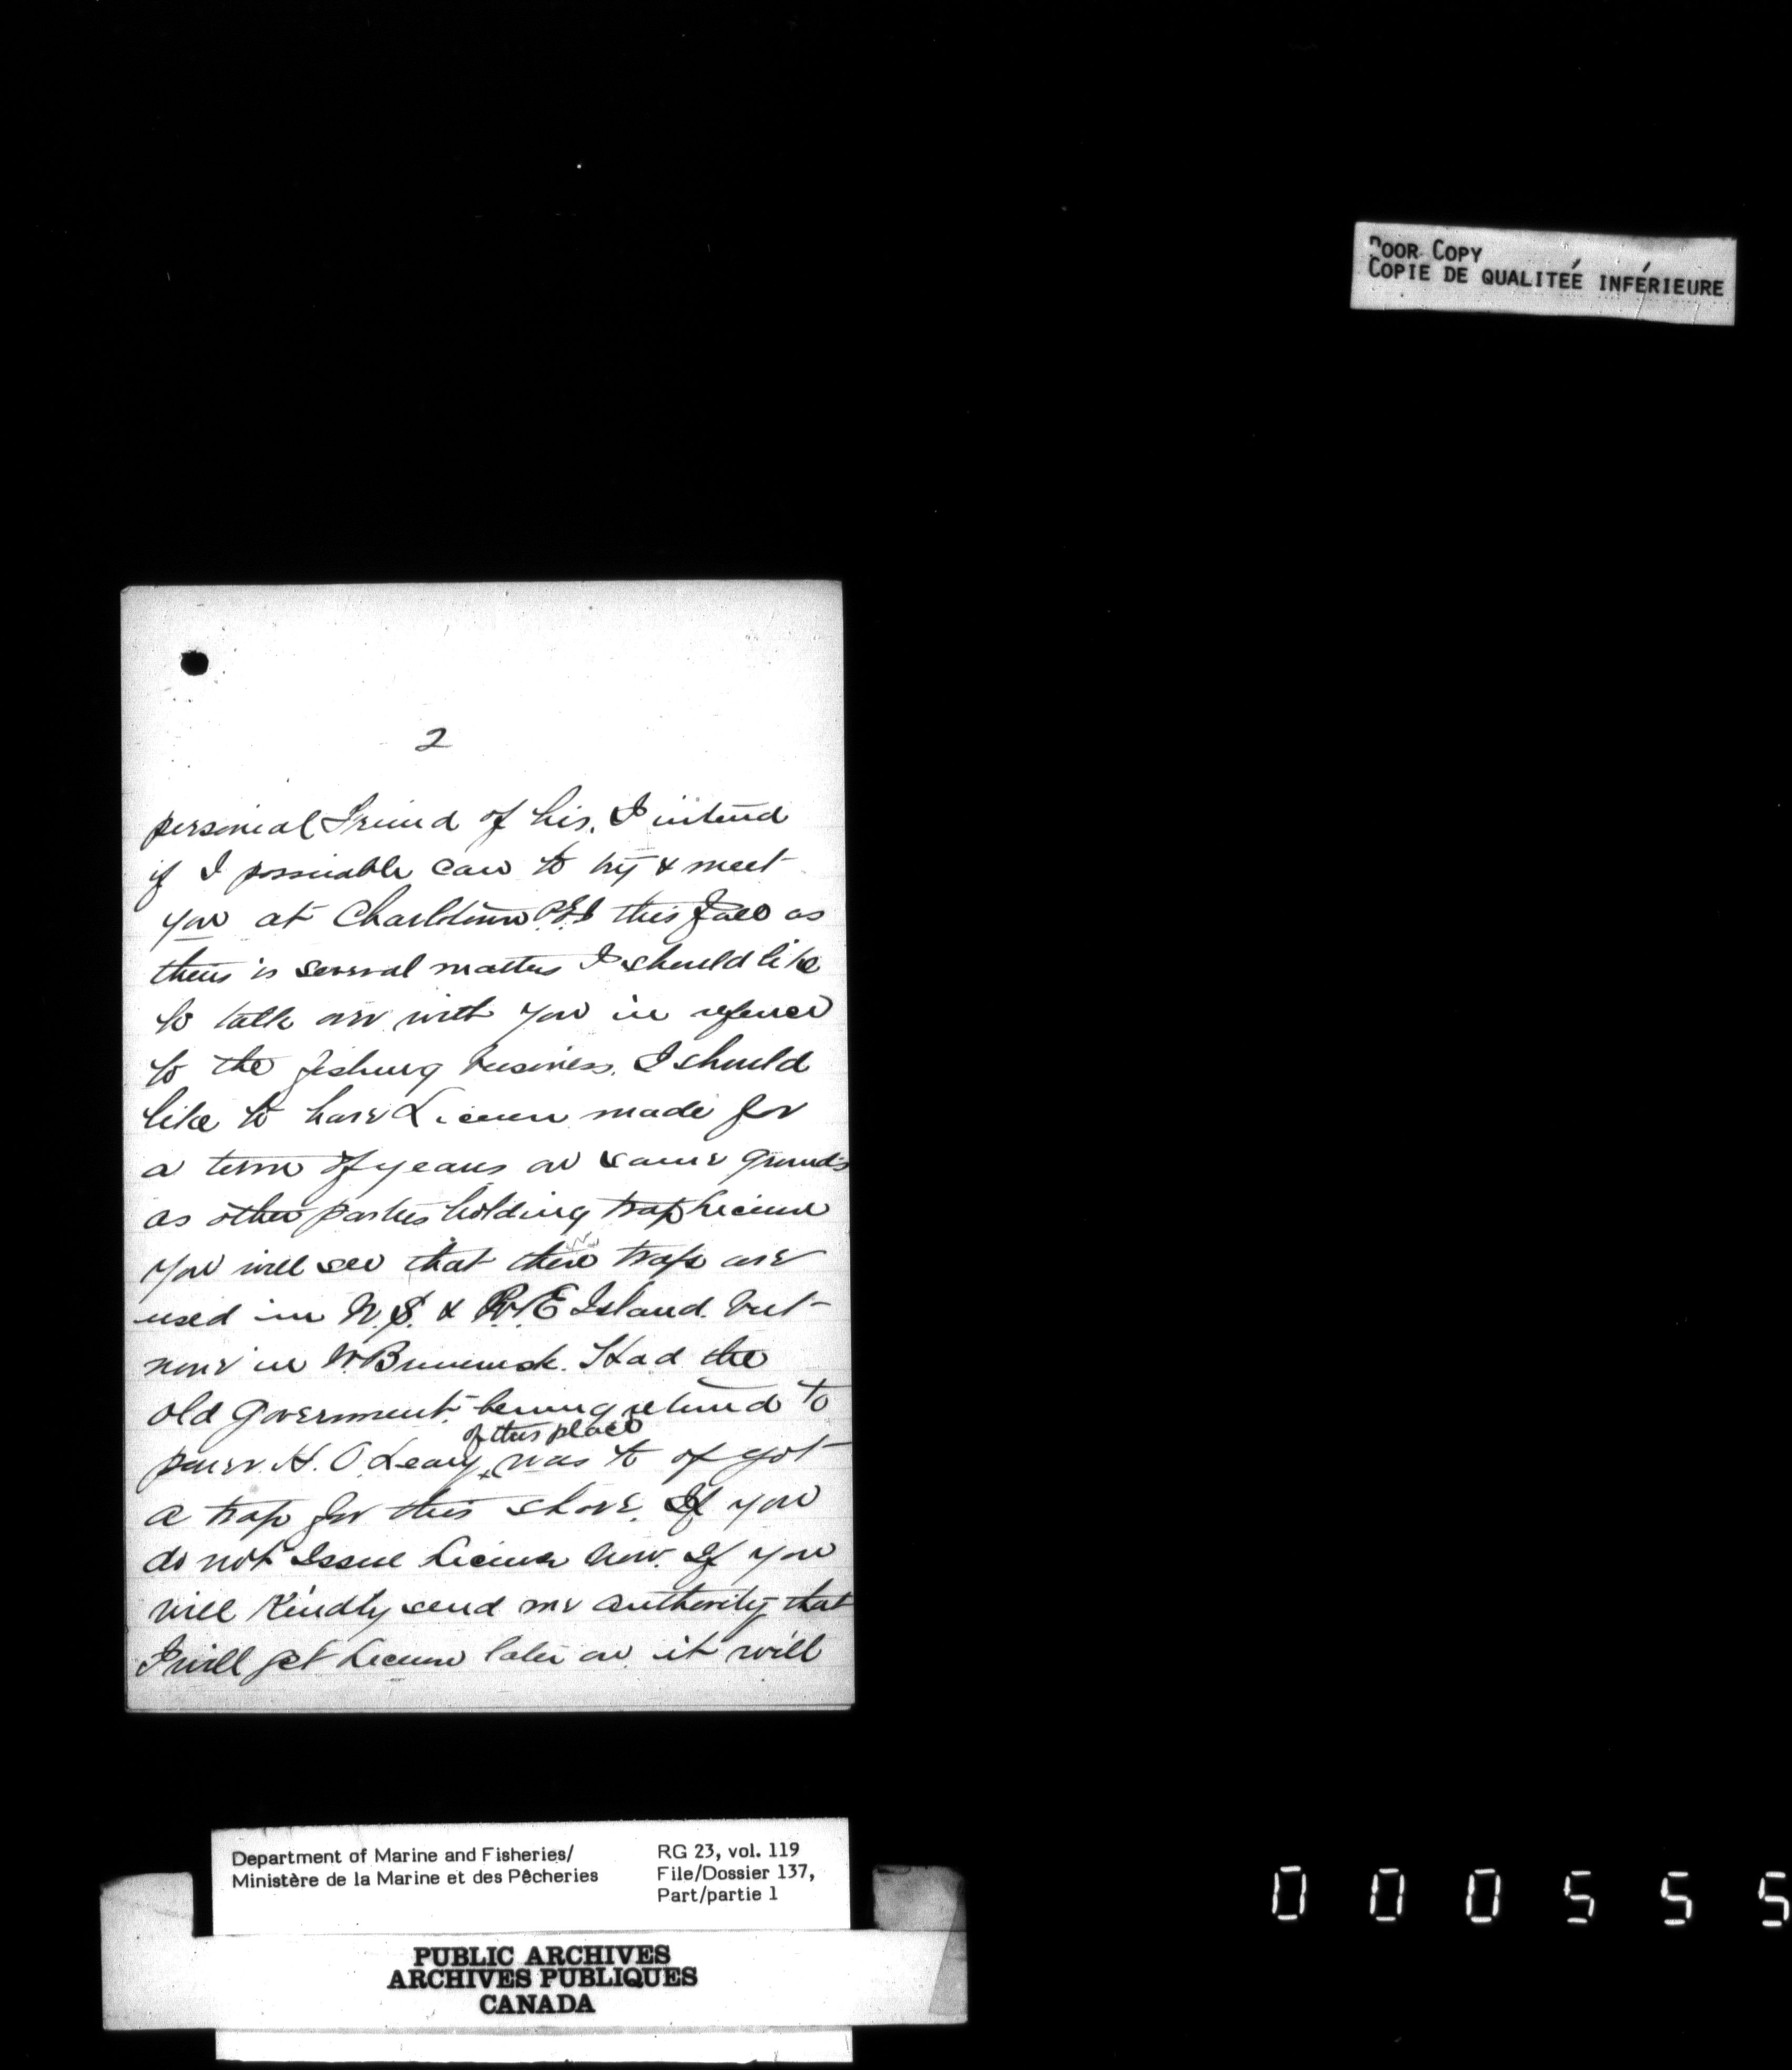 Poor Copy
Copie de qualiteé inférieure
2
personial Friend of his. I intend
if I possiable can to try & meet
you at Charltown P.E.I this Fall as
their is several matters I should like
to talk over with you in refence
to the fishing business. I should
like to have License made for
a term of years on same grounds
as other parties holding trap License
you will see that these traps are
used in N.S. & P.E Island. but
none in N. Brunswick. Had the
old Government being returned to
of this place
power H. O Leary was to of got
a trap for this shore. If you
do not Issue License now. If you
will Kindly send me authority that
I will get License later on it will
Department of Marine and Fisheries/
Ministère de la Marine et des Pêcheries
RG 23, vol. 119
File/Dossier 137,
Part/partie 1
PUBLIC ARCHIVES
ARCHIVES PUBLIQUES
CANADA
000555